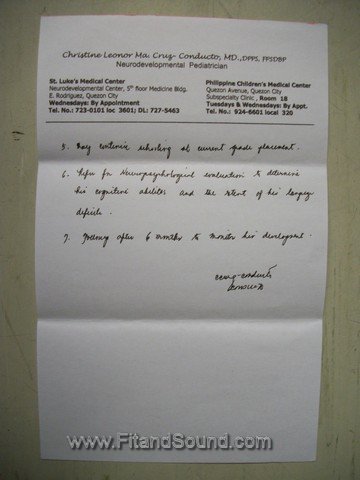 Christine Leonor Ma. Cruz- Conducto, MD.,DPPS, FFSDBP
Neurodevelopmental Pediatrician
St. Luke's Medical Center
Neurodevelopmental Center, 5th floor Medicine Bldg.
E. Rodriguez, Quezon City
Wednesdays: By Appointment
Tel. No.: 723-0101 loc 3601; DL: 727-5463
Philippine Children's Medical Center
Quezon Avenue, Quezon City
Subspecialty Clinic , Room 18
Tuesdays & Wednesdays: By Appt.
Tel. No.: 924-6601 local 320
5. May continue schooling at current grade placement.
6. Refer for Neuropsychological evaluation to determine
his cognitive abilities and the extent of his language
deficits.
7. after 6 months to monitor his development.
www.FitandSound.com